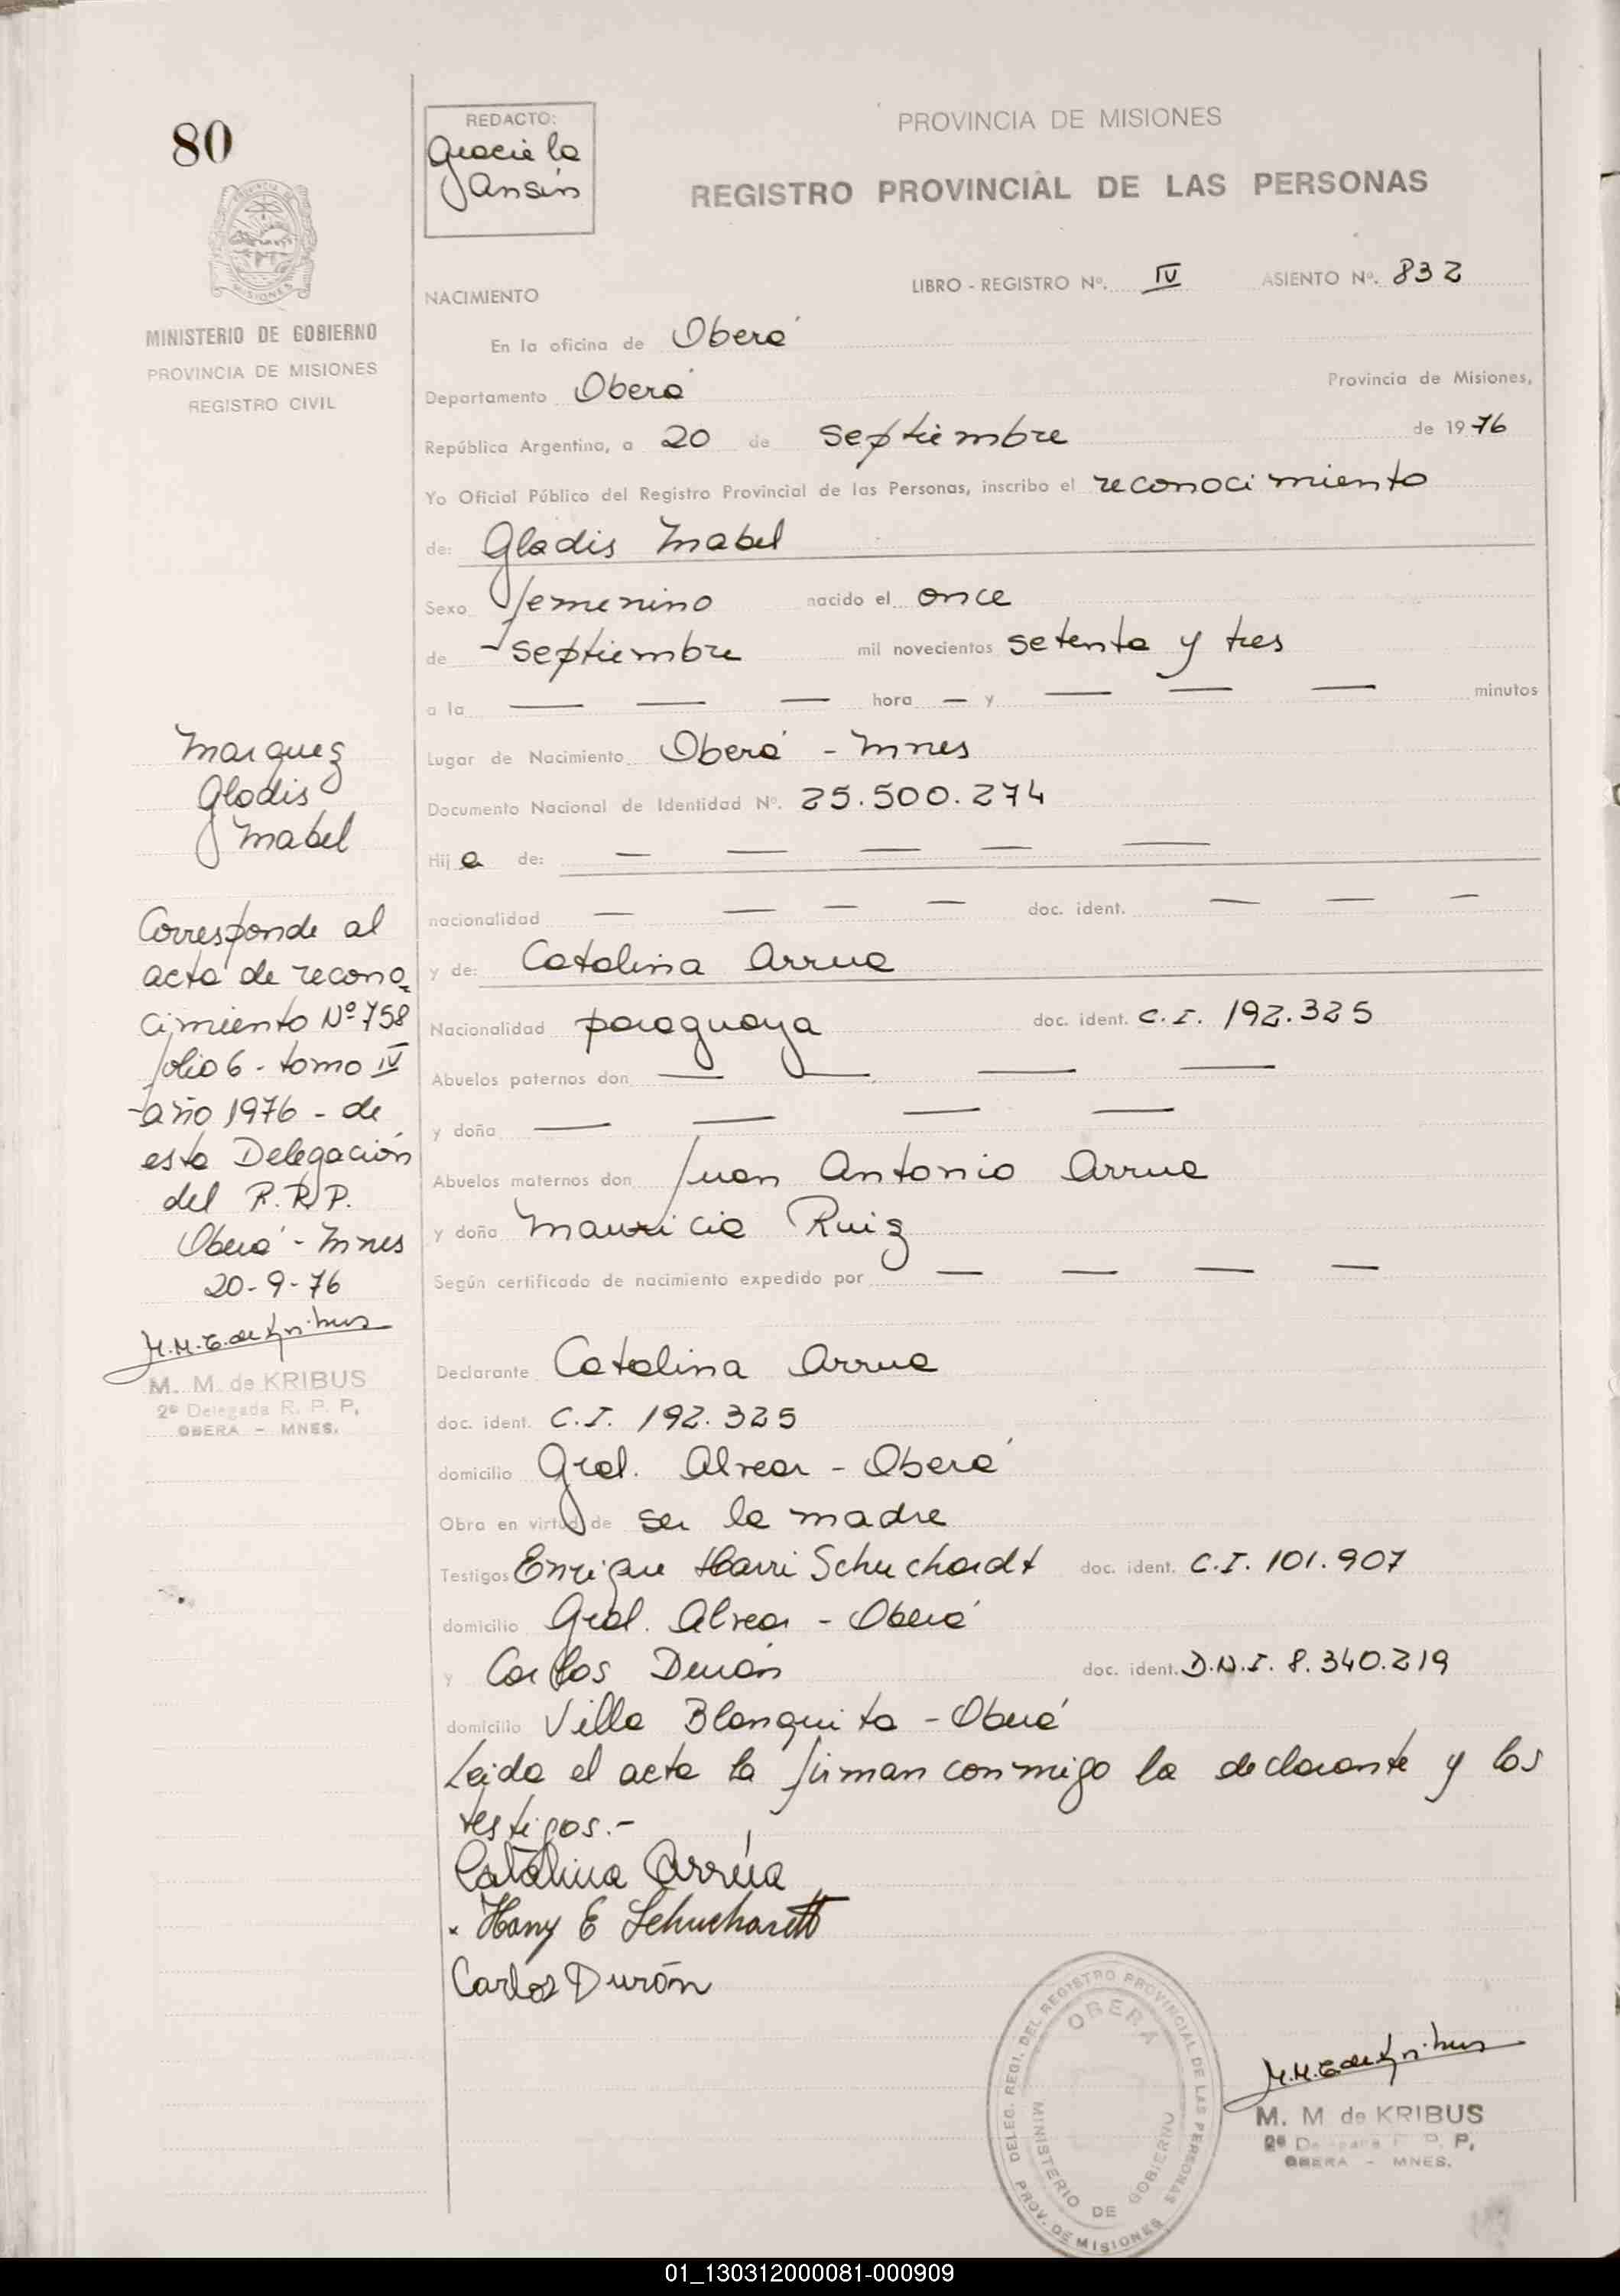 80
MINISTERIO DE GOBIERNO
PROVINCIA DE MISIONES
REGISTRO CIVIL
Marquez
Gladis
Mabel
Corresponde al
acta de recono
cimiento Nº 758
folio 6 - tomo IV
año 1976 - de
esta Delegación
del R.R.P.
Oberá - Mnes
20-9-76
M. M. de KRIBUS
2ª Delegada R. P. P.
OBERA - MNES.
REDACTO:
Graciela
Ansin
PROVINCIA DE MISIONES
REGISTRO PROVINCIAL DE LAS PERSONAS
NACIMIENTO LIBRO - REGISTRO Nº. IV ASIENTO Nº. 832
En la oficina de Oberá
Departamento Oberá Provincia de Misiones,
República Argentina, a 20 de septiembre de 1976
Yo Oficial Público del Registro Provincial de las Personas, inscribo el reconocimiento
de: Gladis Mabel
Sexo femenino nacido el once
de septiembre mil novecientos setenta y tres
a la — — — hora — y — — — minutos
Lugar de Nacimiento Oberá - Mnes
Documento Nacional de Identidad Nº. 25.500.274
Hij a de: — — — — —
nacionalidad — — — — doc. ident. — — —
y de: Catalina Arrua
Nacionalidad paraguaya doc. ident. C.I. 192.325
Abuelos paternos don — — — —
y doña — — — —
Abuelos maternos don Juan Antonio Arrua
y doña Mauricia Ruiz
Según certificado de nacimiento expedido por — — — —
Declarante Catalina Arrua
doc. ident. C.I. 192.325
domicilio Gral. Alvear - Oberá
Obra en virtud de ser la madre
Testigos Enrique Harri Schuchardt doc. ident. C.I. 101.907
domicilio Gral. Alvear - Oberá
y Carlos Durán doc. ident. D.N.I. 8.340.219
domicilio Villa Blanquita - Oberá
Leida el acta la firman conmigo la declarante y los
testigos.-
Catalina Arrúa
Harry E Schuchardt
Carlos Durán
DELEG. REGI. DEL REGISTRO PROVINCIAL DE LAS PERSONAS
OBERA
MINISTERIO DE GOBIERNO
PROV. DE MISIONES
M. M. de KRIBUS
OBERA - MNES.
01_130312000081-000909